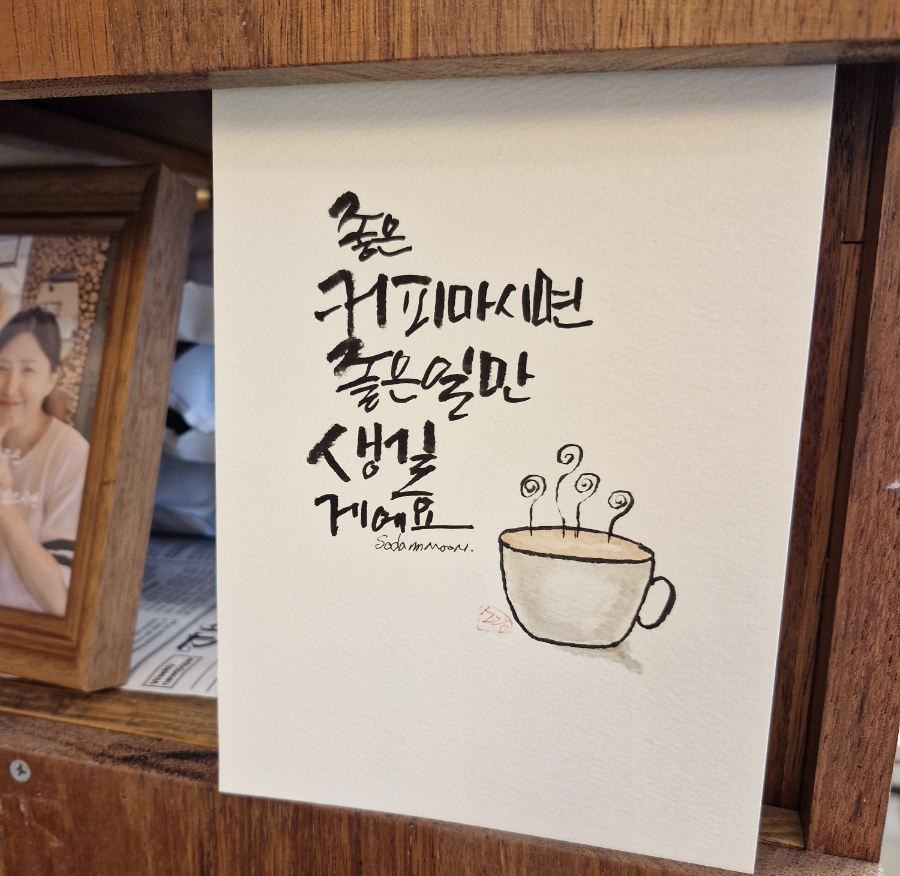 좋은
커피마시면
좋은일만
생길
게에요